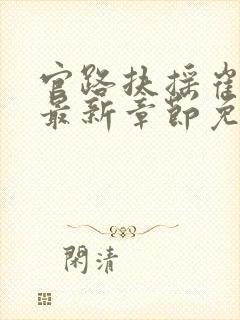 官路扶摇崔
最新章節免
閑清